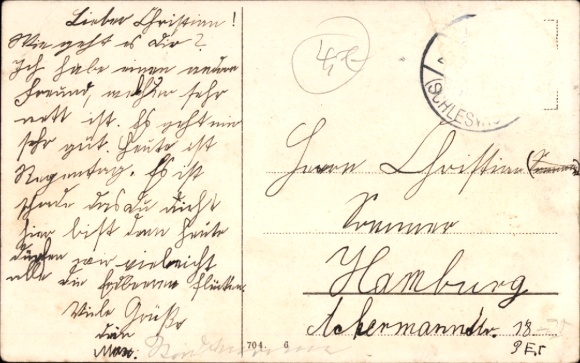 Lieber Christian!
Wie geht es dir?
Ich habe einen neuen
Freund, welcher sehr
nett ist. Es geht mir
sehr gut. Heute ist
Regentag. Es ist
schade das du nicht
hier bist denn heute
dürfen wir vielleicht
alle die pflücken.
Viele Grüße
dein
Max.
4,-
(SCHLESW
Herrn Christian
Sommer
Hamburg
Ackermannstr. 18
9 Et
704 6